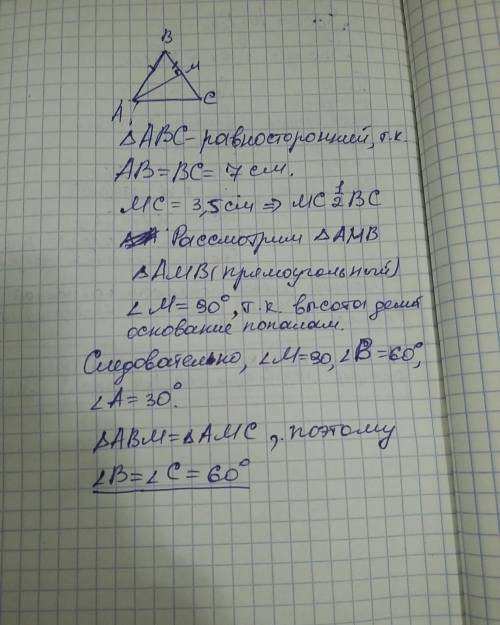 B
M
A
C
△ABC - равносторонний, т.к.
AB = BC = 7 см.
MC = 3,5 см ⇒ MC ½ BC
Рассмотрим △AMB
△AMB (прямоугольный)
∠M = 90°, т.к. высоты делит
основание пополам.
Следовательно, ∠M = 90, ∠B = 60°,
∠A = 30°.
△ABM = △AMC, поэтому
∠B = ∠C = 60°